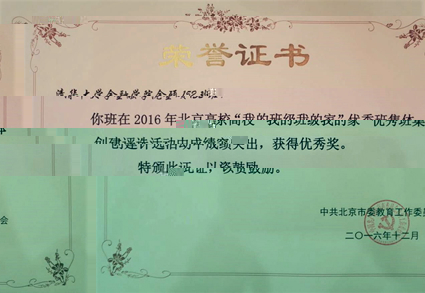 荣誉证书
清华大学金融学院金融
你班在2016年北京高校“我的班级我的家”优秀班集体
创建评选活动中成绩突出，获得优秀奖。
特颁此证，以资鼓励。
中共北京市委教育工作委
二〇一六年十二月
会